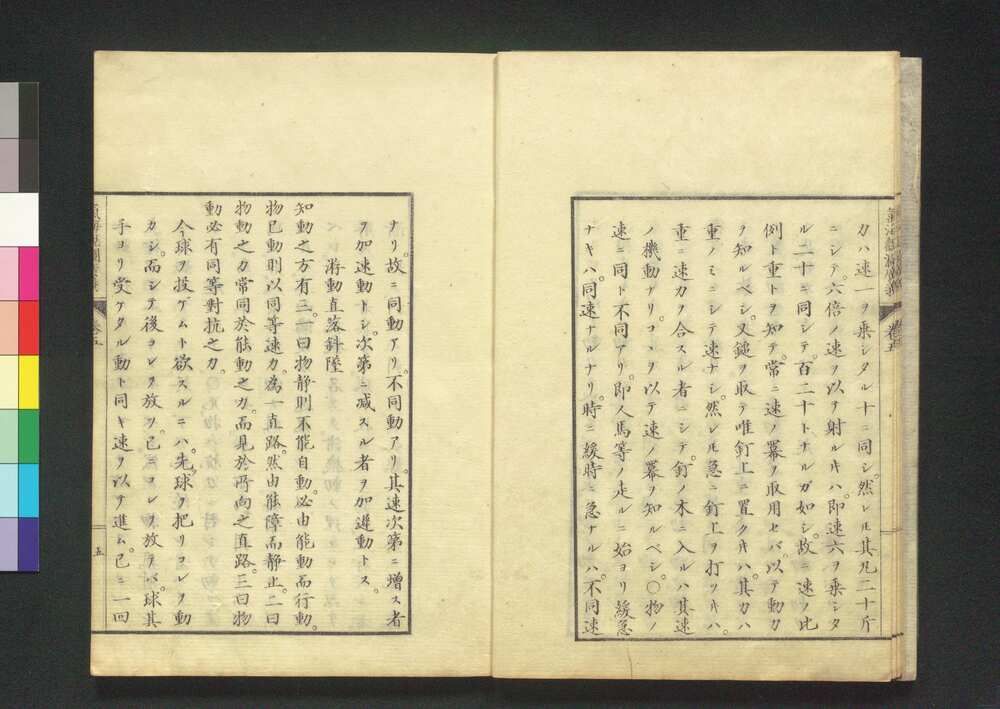 カハ速一ヲ乗シタル十ニ同シ。然レ𪜈其凡二十斤
ニシテ。六倍ノ速ヲ以テ射ルキハ。即速六ヲ乗シタ
ル二十ニ同シテ。百二十トナルガ如シ。故ニ速ノ比
例ト重トヲ知テ。常ニ速ノ冪ヲ取用セバ。以テ動力
ヲ知ルベシ。又鎚ヲ取テ唯釘上ニ置クキハ。其力ハ
重ノミニシテ速ナシ。然レ𪜈急ニ釘上ヲ打ツキハ。
重ニ速力ヲ合スル者ニシテ。釘ノ木ニ入ルハ其速
ノ機動ナリ。コヽヲ以テ速ノ冪ヲ知ルベシ。〇物ノ
速ニ同ト不同アリ。即人馬等ノ走ルニ始ヨリ緩急
ナキハ。同速ナルナリ。時ニ緩時ニ急ナルハ。不同速
ナリ。故ニ同動アリ。不同動アリ。其速次第ニ増ス者
ヲ加速動トシ。次第ニ減スル者ヲ加遅動トス。
游動直落斜墜
知動之方有三。一曰物静則不能自動。必由能動而行動。
物已動則以同等速力。為一直路。然由能障而静止。二曰
物動之力常同於能動之力。而見於所向之直路。三曰物
動必有同等對抗之力。
今球ヲ投ゲムト欲スルニハ。先球ヲ把リコレヲ動
カシ。而シテ後コレヲ放ツ。已ニコレヲ放テバ。球其
手ヨリ受ケタル動ト同キ速ヲ以テ進ム。已ニ一回
五